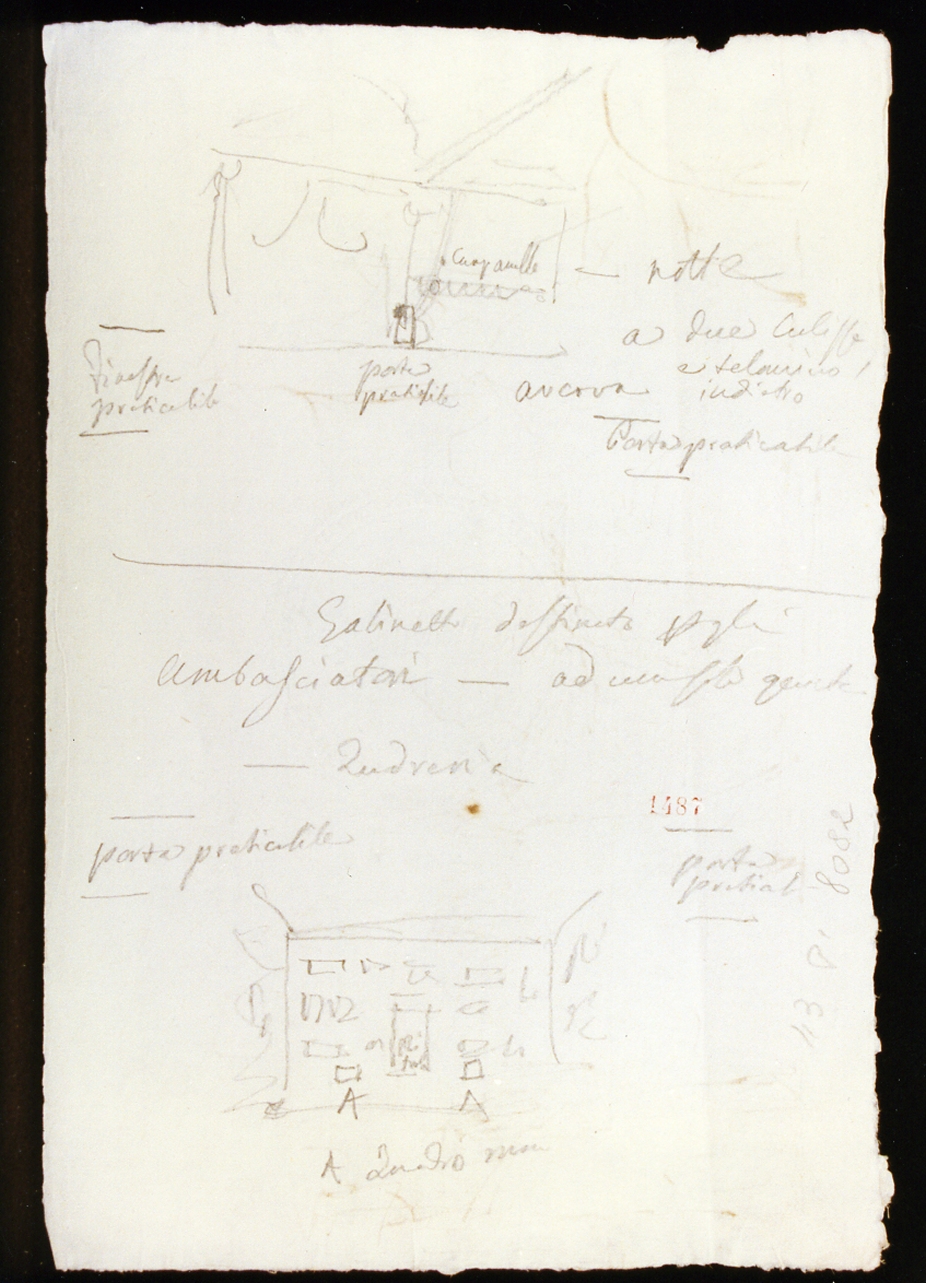 Campanille
— notte
a due Culisse
e telonino
indietro
Finestra
praticabile
porta
praticabile
ancora
Porta praticabile
Gabinetto destinato p gli
Ambasciatori —
— Quadreria
1487
porta praticabile
porta
praticab
8082
A A
A Quadro